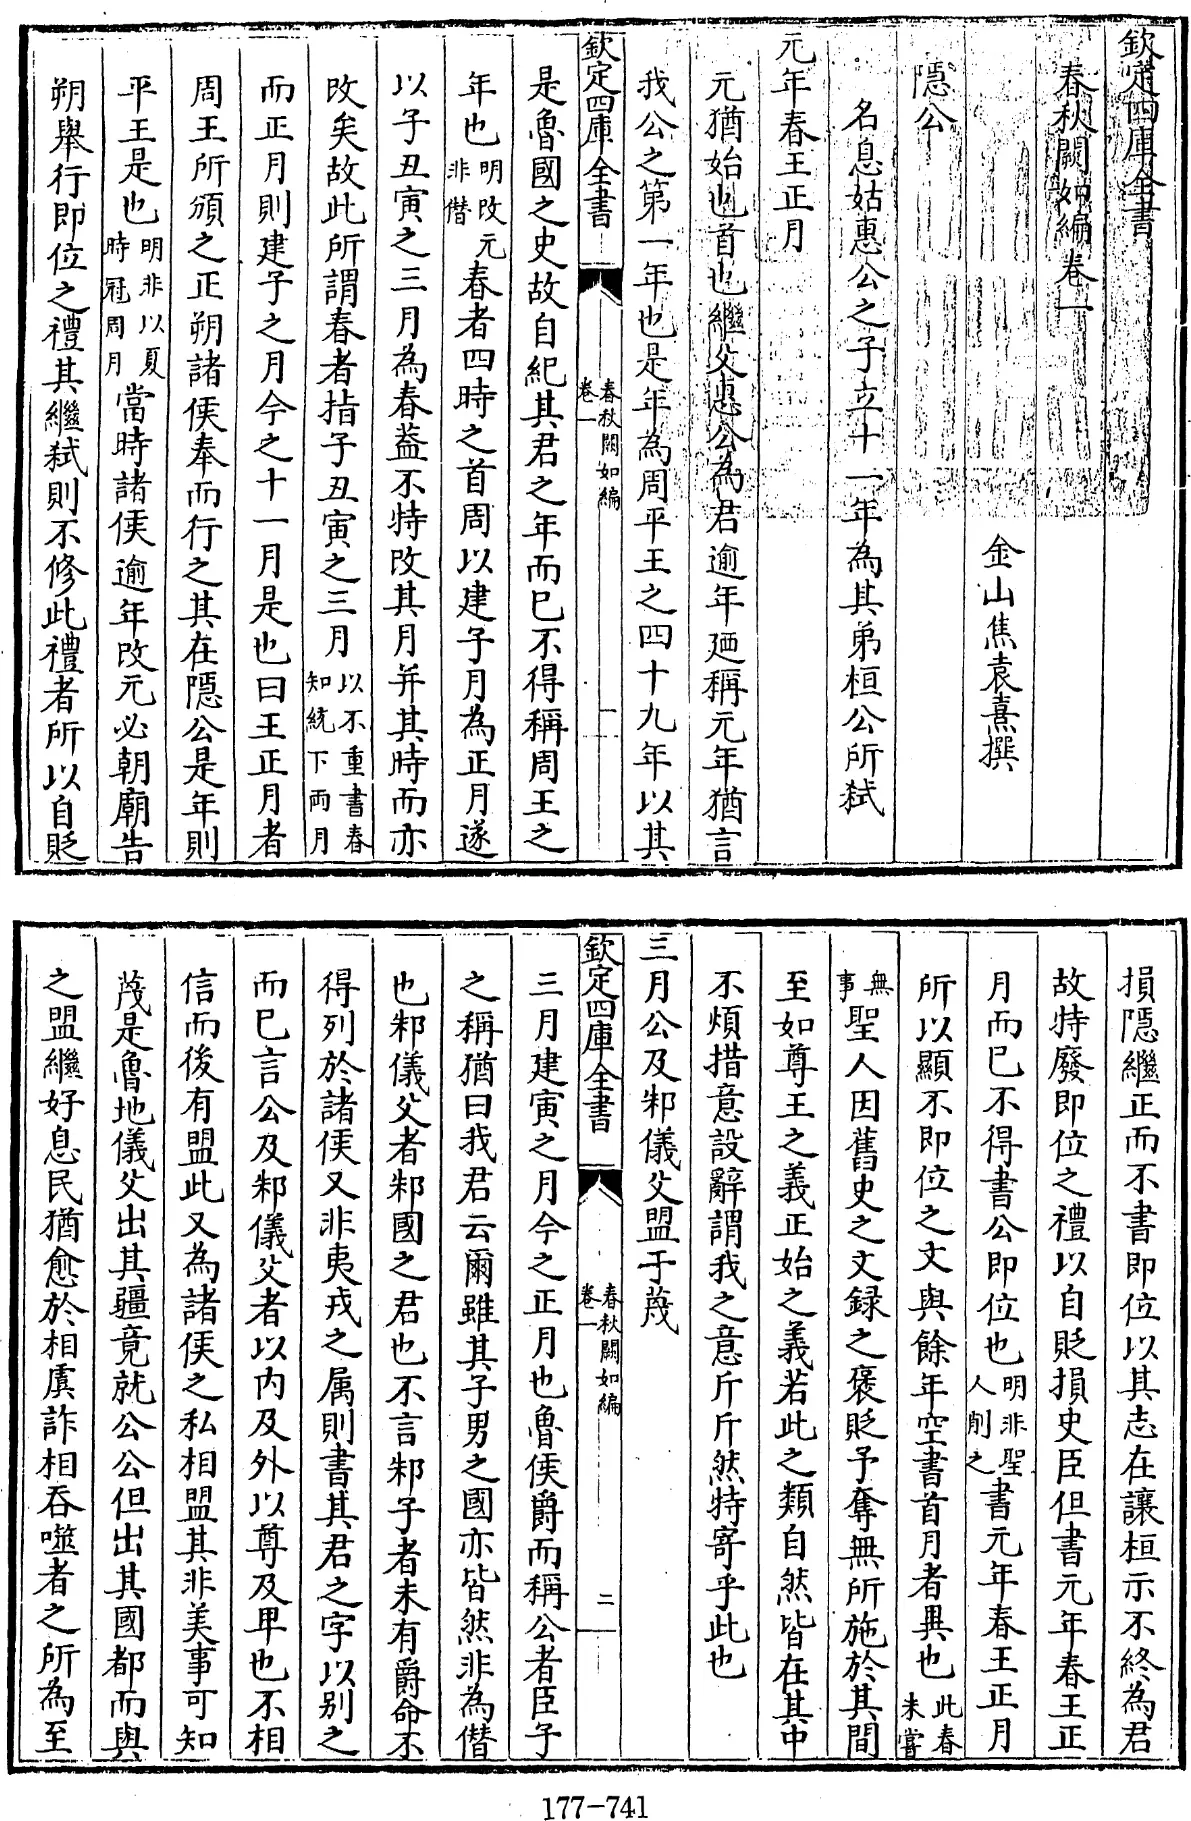 欽定四庫全書
春秋闕如編卷一
金山焦袁熹撰
隱公
名息姑惠公之子立十一年為其弟桓公所弑
元年春王正月
元猶始也首也繼父惠公為君逾年廼稱元年猶言
我公之第一年也是年為周平王之四十九年以其
欽定四庫全書
春秋闕如編
卷一
一
是魯國之史故自紀其君之年而已不得稱周王之
年也明改元非僭春者四時之首周以建子月為正月遂
以子丑寅之三月為春葢不特改其月并其時而亦
改矣故此所謂春者指子丑寅之三月以不重書春知統下兩月
而正月則建子之月今之十一月是也曰王正月者
周王所頒之正朔諸侯奉而行之其在隱公是年則
平王是也明非以夏時冠周月當時諸侯逾年改元必朝廟告
朔舉行即位之禮其繼弑則不修此禮者所以自貶
損隱繼正而不書即位以其志在讓桓示不終為君
故特廢即位之禮以自貶損史臣但書元年春王正
月而已不得書公即位也明非聖人削之書元年春王正月
所以顯不即位之文與餘年空書首月者異也此春未嘗
無事聖人因舊史之文録之褒貶予奪無所施於其間
至如尊王之義正始之義若此之類自然皆在其中
不煩措意設辭謂我之意斤斤然特寄乎此也
三月公及邾儀父盟于蔑
欽定四庫全書
春秋闕如編
卷一
二
三月建寅之月今之正月也魯侯爵而稱公者臣子
之稱猶曰我君云爾雖其子男之國亦皆然非為僭
也邾儀父者邾國之君也不言邾子者未有爵命不
得列於諸侯又非夷戎之属則書其君之字以别之
而已言公及邾儀父者以内及外以尊及卑也不相
信而後有盟此又為諸侯之私相盟其非美事可知
蔑是魯地儀父出其疆竟就公公但出其國都而與
之盟繼好息民猶愈於相虞詐相吞噬者之所為至
177-741